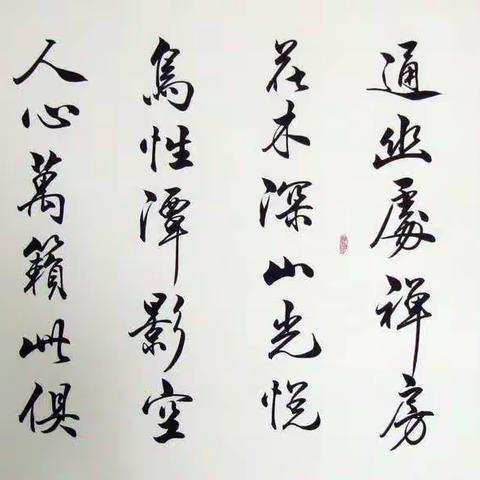 通幽處禅房
花木深山光悦
鳥性潭影空
人心萬籟此俱